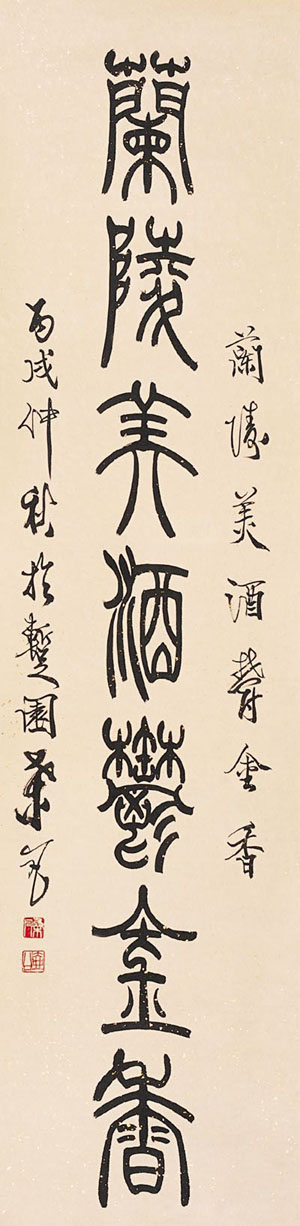 蘭陵美酒鬱金香
蘭陵美酒鬱金香
丙戌仲秋於園